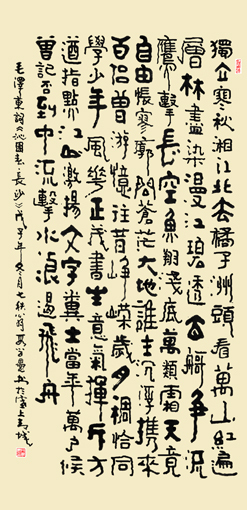 獨立寒秋湘江北去橘子洲頭看萬山紅遍
層林盡染漫江碧透百舸爭流
鷹擊長空魚翔淺底萬類霜天竟
自由悵寥廓問蒼茫大地誰主沉浮攜來
百侶曾游憶往昔崢嶸歲月稠恰同
學少年風華正茂書生意氣揮斥方
遒指點江山激揚文字糞土當年萬户候
曾記否到中流擊水浪遏飛舟
毛澤東詞《沁園春長沙》戊子年冬月七秩翁